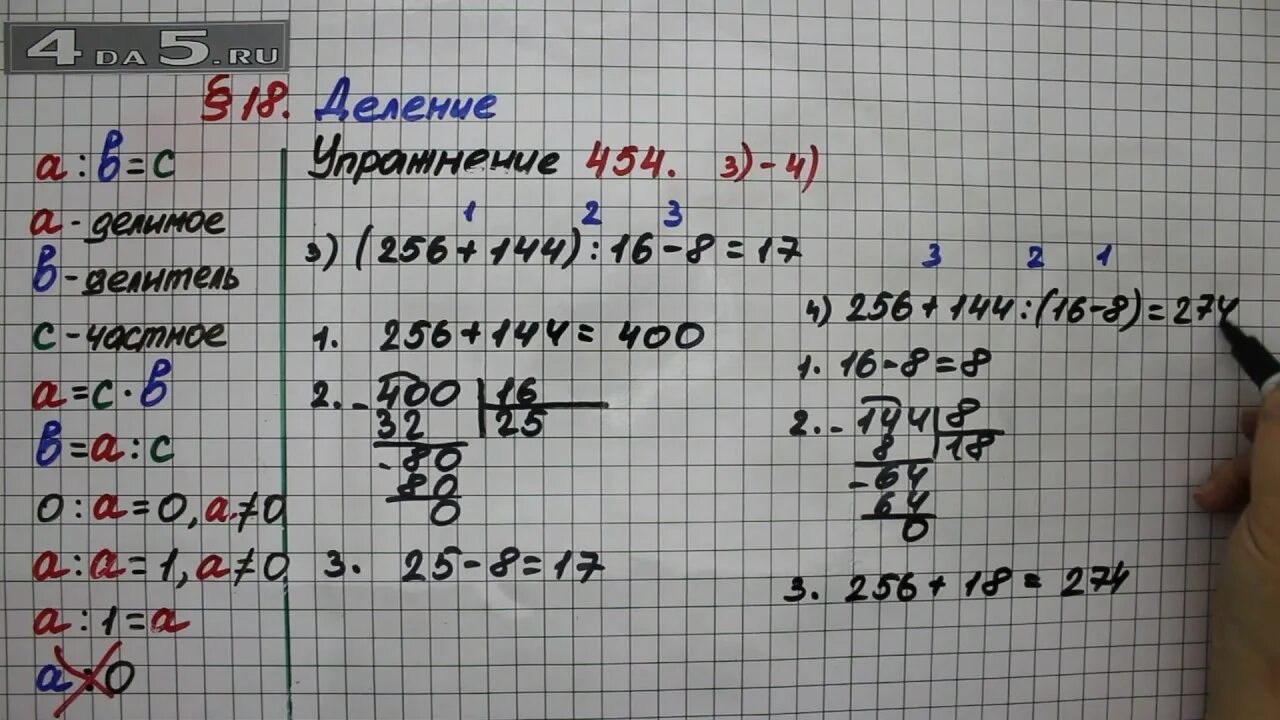 4DA5.RU
§ 18. Деление
a : b = c
a - делимое
b - делитель
c - частное
a = c · b
b = a : c
0 : a = 0, a ≠ 0
a : a = 1, a ≠ 0
a : 1 = a
a : 0
Упражнение 454. 3) - 4)
1 2 3
3) (256 + 144) : 16 - 8 = 17
1. 256 + 144 = 400
2. - 400 | 16
32 | 25
- 80
80
0
3. 25 - 8 = 17
3 2 1
4) 256 + 144 : (16 - 8) = 274
1. 16 - 8 = 8
2. - 144 | 8
8 | 18
- 64
64
0
3. 256 + 18 = 274